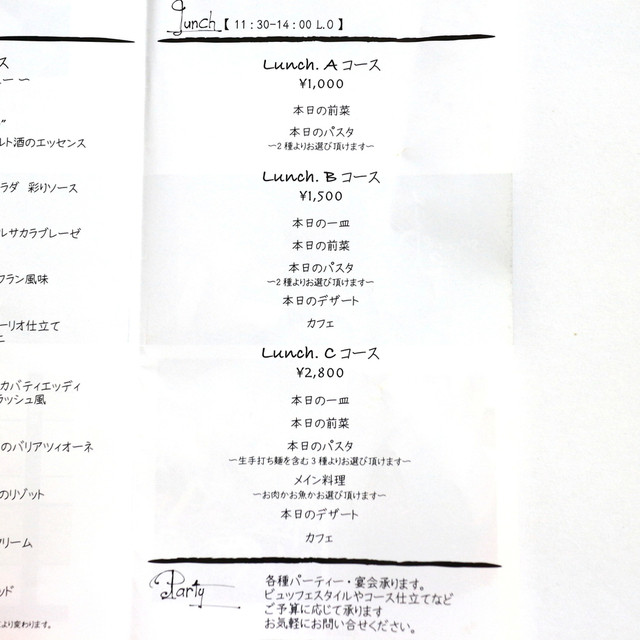 ス
ルト酒のエッセンス
ラダ 彩りソース
ルサカラブレーゼ
フラン風味
ーリオ仕立て
ニ
カバティエッディ
ラッシュ風
のバリアツィオーネ
のリゾット
クリーム
ッド
より変わります。
Lunch【 11:30-14:00 L.O 】
Lunch. A コース
¥1,000
本日の前菜
本日のパスタ
~2種よりお選び頂けます~
Lunch. B コース
¥1,500
本日の一皿
本日の前菜
本日のパスタ
~2種よりお選び頂けます~
本日のデザート
カフェ
Lunch. C コース
¥2,800
本日の一皿
本日の前菜
本日のパスタ
~生手打ち麺を含む3種よりお選び頂けます~
メイン料理
~お肉かお魚かお選び頂けます~
本日のデザート
カフェ
Party
各種パーティー・宴会承ります。
ビュッフェスタイルやコース仕立てなど
ご予算に応じて承ります
お気軽にお問い合せください。